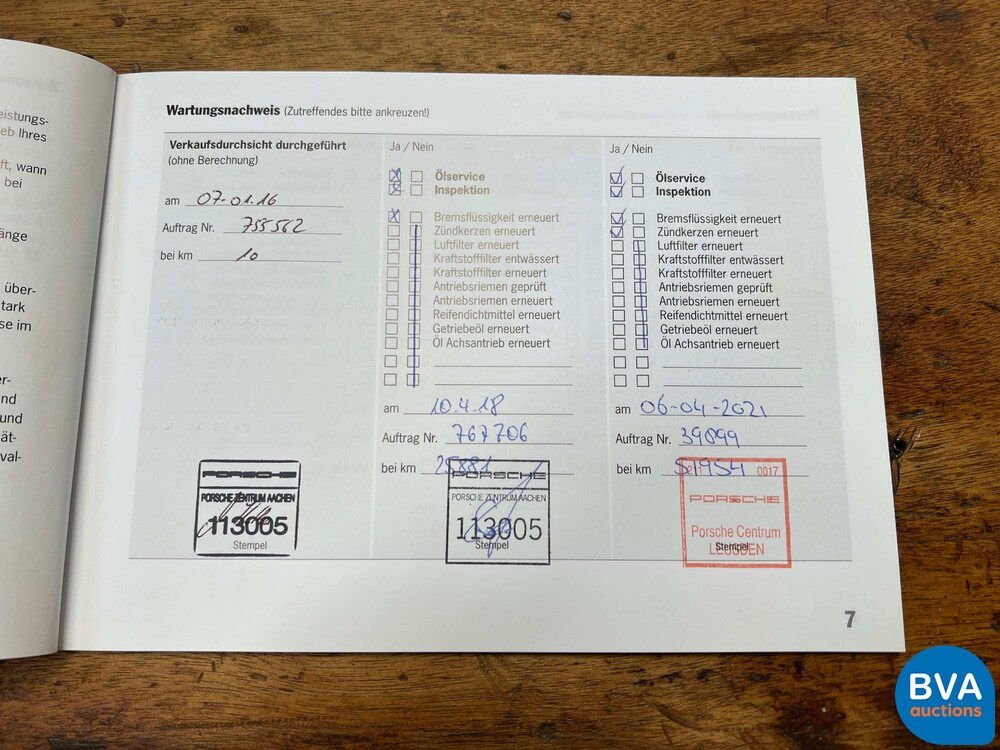 eistungs-
eb Ihres
ft, wann
bei
änge
über-
tark
se im
er-
nd
und
ät-
val-
Wartungsnachweis (Zutreffendes bitte ankreuzen!)
Verkaufsdurchsicht durchgeführt
(ohne Berechnung)
am 07-01.16
Auftrag Nr. 755562
bei km 10
PORSCHE
PORSCHE ZENTRUM AACHEN
113005
Stempel
Ja / Nein
Ölservice
Inspektion
Bremsflüssigkeit erneuert
Zündkerzen erneuert
Luftfilter erneuert
Kraftstofffilter entwässert
Kraftstofffilter erneuert
Antriebsriemen geprüft
Antriebsriemen erneuert
Reifendichtmittel erneuert
Getriebeöl erneuert
Öl Achsantrieb erneuert
am 10.4.18
Auftrag Nr. 767706
bei km 25881
PORSCHE
PORSCHE ZENTRUM AACHEN
113005
Stempel
Ja / Nein
Ölservice
Inspektion
Bremsflüssigkeit erneuert
Zündkerzen erneuert
Luftfilter erneuert
Kraftstofffilter entwässert
Kraftstofffilter erneuert
Antriebsriemen geprüft
Antriebsriemen erneuert
Reifendichtmittel erneuert
Getriebeöl erneuert
Öl Achsantrieb erneuert
am 06-04-2021
Auftrag Nr. 39099
bei km 51954
0017
PORSCHE
Porsche Centrum
LEUSDEN
Stempel
7
BVA
auctions